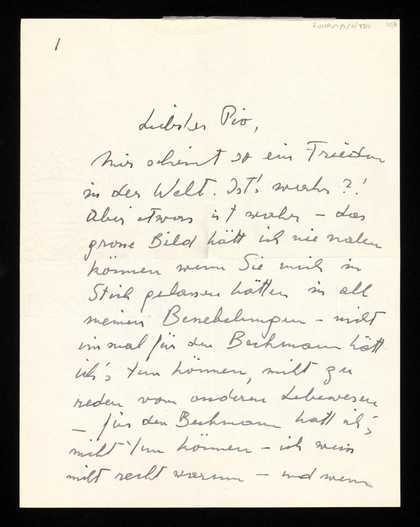 1
Liebster Pio,
mir scheint so ein Frieden
in der Welt. Ist's wahr?!
Aber etwas ist wahr – das
grosse Bild hätt ich nie malen
können wenn Sie mich im
Stich gelassen hätten in all
meinen Benebelungen – nicht
einmal für den Beckmann hätt
ich's tun können, nicht zu
reden von anderen Lebewesen
– für den Beckmann hätt ich's
nicht tun können – ich weiss
nicht recht warum – und wenn